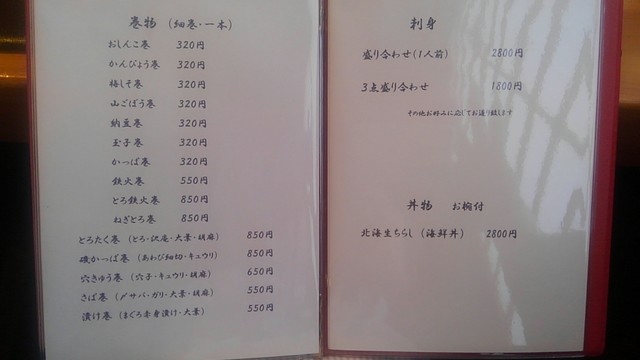 巻物 (細巻・一本)
おしんこ巻 320円
かんぴょう巻 320円
梅しそ巻 320円
山ごぼう巻 320円
納豆巻 320円
玉子巻 320円
かっぱ巻 320円
鉄火巻 550円
とろ鉄火巻 850円
ねぎとろ巻 850円
とろたく巻 (とろ・沢庵・大葉・胡麻) 850円
磯かっぱ巻 (あわび細切・キュウリ) 850円
穴きゅう巻 (穴子・キュウリ・胡麻) 650円
さば巻 (〆サバ・ガリ・大葉・胡麻) 550円
漬け巻 (まぐろ赤身漬け・大葉) 550円
刺身
盛り合わせ(1人前) 2800円
3点盛り合わせ 1800円
その他お好みに応じてお造り致します
丼物 お椀付
北海生ちらし (海鮮丼) 2800円